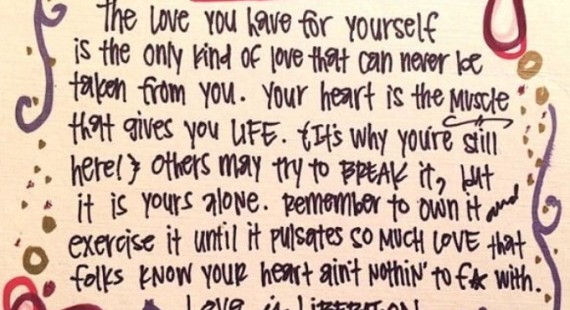 The Love you have for yourself
is the only kind of love that can never be
taken from you. Your heart is the Muscle
that gives you LIFE. {It's why you're still
here!} Others may try to BREAK it, but
it is yours alone. Remember to own it and
exercise it until it pulsates SO MUCH LOVE that
folks KNOW YOUR heart ain't NOTHIN' to f*k with.
Love is LIBERATION